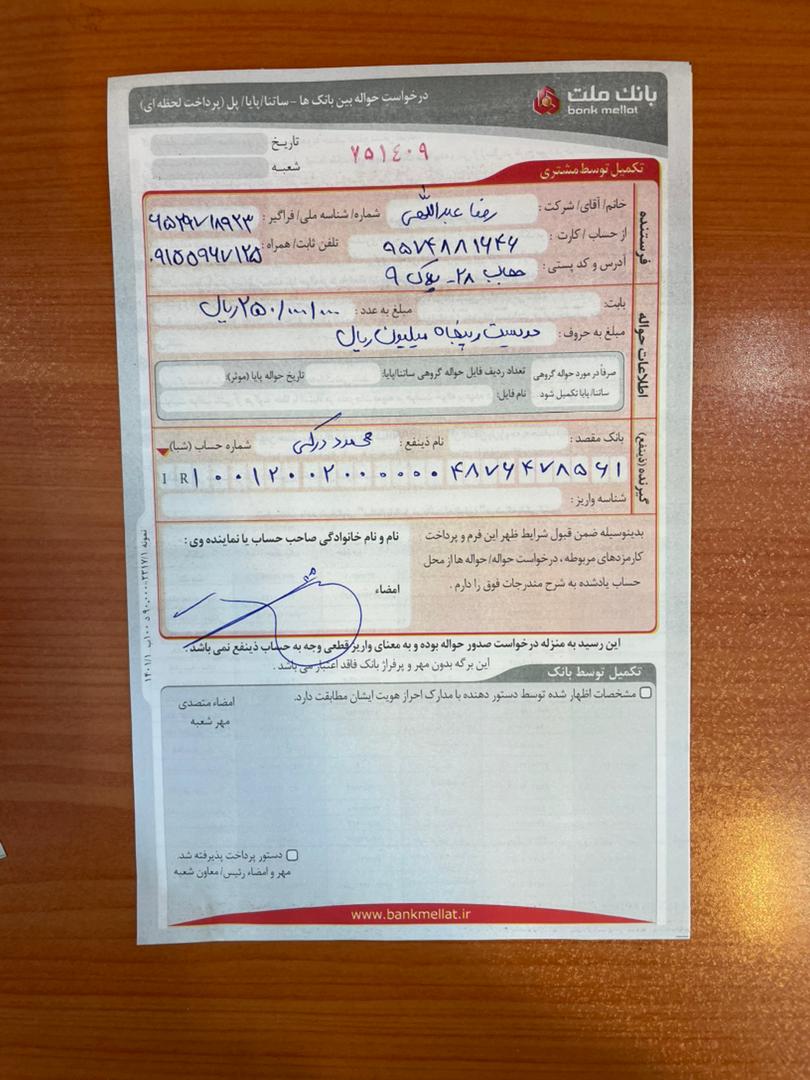 بانک ملت
bank mellat
درخواست حواله بین بانک ها - ساتنا/پایا/ پل (پرداخت لحظه ای)
تاریخ
شعبه
۷۵۱۴۰۹
تکمیل توسط مشتری
فرستنده
خانم/ آقای/ شرکت : رضا عبداللهی شماره/ شناسه ملی/ فراگیر :
از حساب / کارت : ۹۵۷۴۸۸۱۶۴۶ تلفن ثابت/ همراه : ۰۹۱۵۵۹۶۷۱۲۵
آدرس و کد پستی : ۲۸- پلاک ۹
اطلاعات حواله
بابت: مبلغ به عدد : ۲۵۰/۰۰۰/۰۰۰ ریال
مبلغ به حروف : دویست و پنجاه میلیون ریال
صرفاً در مورد حواله گروهی ساتنا/پایا تکمیل شود
تعداد ردیف فایل حواله گروهی ساتنا/پایا: تاریخ حواله پایا (موثر):
نام فایل:
گیرنده (ذینفع)
بانک مقصد : نام ذینفع : محمود شماره حساب (شبا)
I R ۱۰۰۱۲۰۰۲۰۰۰۰۰۰۴۸۷۶۴۷۸۵۶۱
شناسه واریز :
بدینوسیله ضمن قبول شرایط ظهر این فرم و پرداخت
کارمزدهای مربوطه ، درخواست حواله/ حواله ها از محل
حساب یادشده به شرح مندرجات فوق را دارم .
نام و نام خانوادگی صاحب حساب یا نماینده وی :
امضاء
این رسید به منزله درخواست صدور حواله بوده و به معنای واریز قطعی وجه به حساب ذینفع نمی باشد .
این برگه بدون مهر و پرفراژ بانک فاقد اعتبار می باشد .
تکمیل توسط بانک
مشخصات اظهار شده توسط دستور دهنده با مدارک احراز هویت ایشان مطابقت دارد.
امضاء متصدی
مهر شعبه
دستور پرداخت پذیرفته شد.
مهر و امضاء رئیس/ معاون شعبه
www.bankmellat.ir